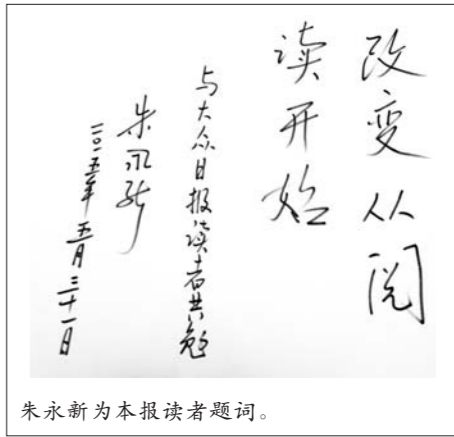 改变从阅
读开始
与大众日报读者共勉
朱永新
二〇一五年五月三十一日
朱永新为本报读者题词。